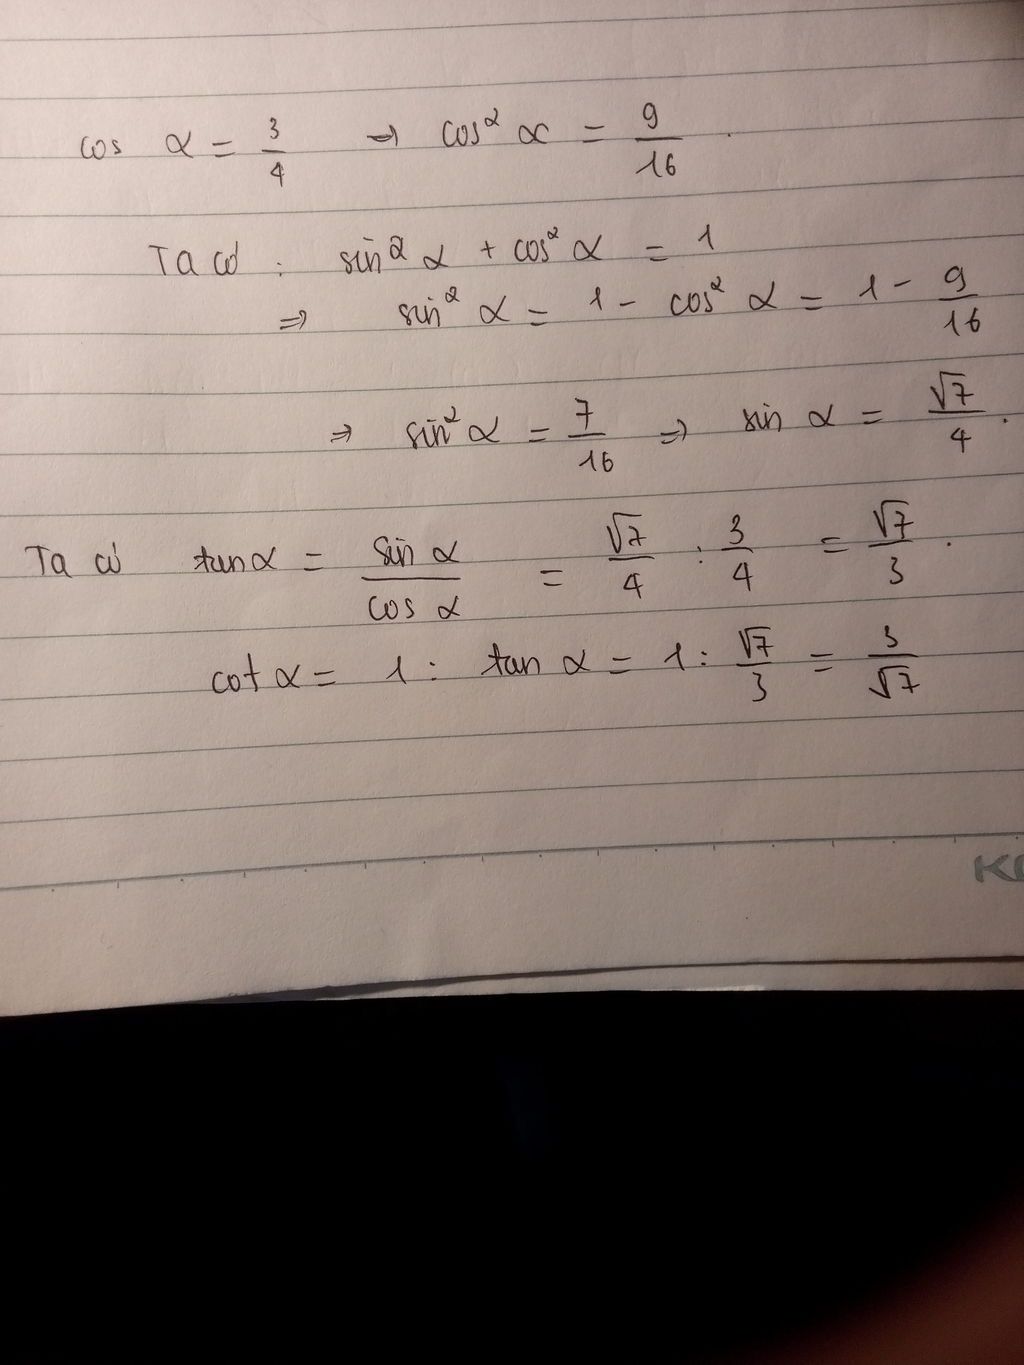 cos α = 3/4 → cos² α = 9/16.
Ta có : sin² α + cos² α = 1
⇒ sin² α = 1 - cos² α = 1 - 9/16
⇒ sin² α = 7/16 ⇒ sin α = √7/4.
Ta có tan α = sin α/cos α = √7/4 : 3/4 = √7/3.
cot α = 1 : tan α = 1 : √7/3 = 3/√7